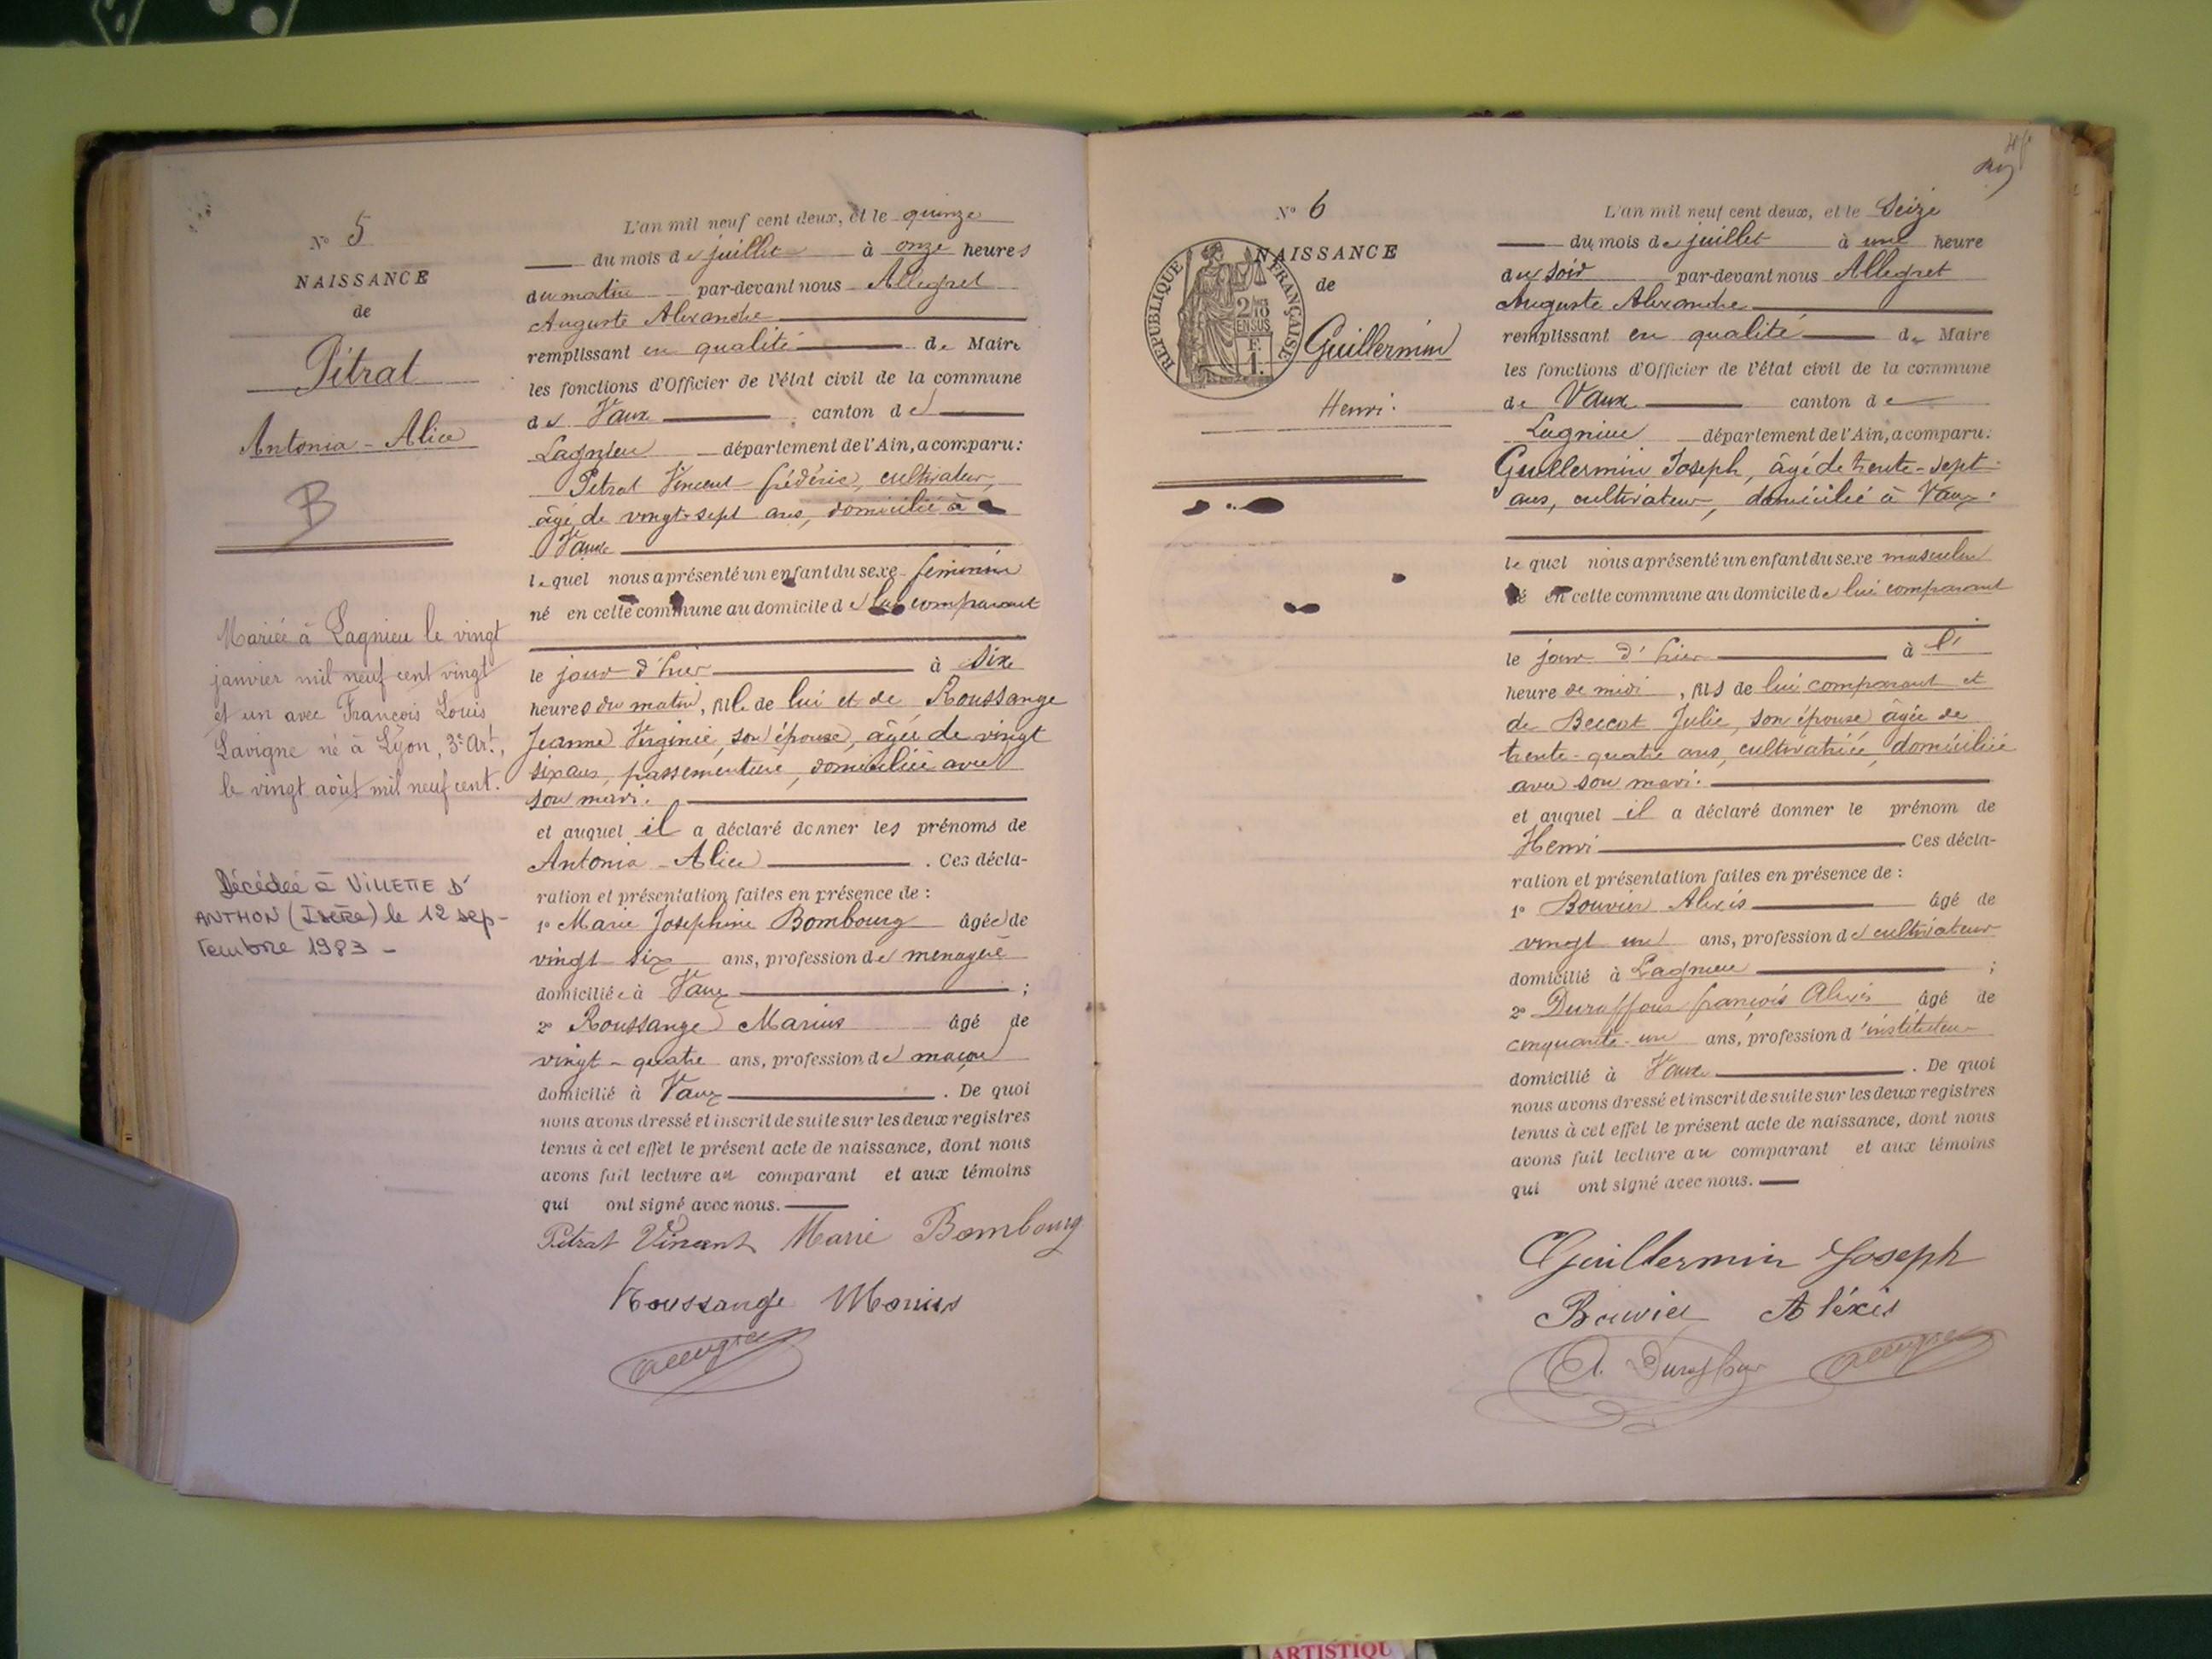 N° 5
NAISSANCE
de
Pitrat
Antonia - Alice
B
Mariée à Lagnieu le vingt
janvier mil neuf cent vingt
et un avec François Louis
Lavigne né à Lyon, 3e Art,
le vingt août mil neuf cent.
Décédée à VILLETTE D'
ANTHON (Isère) le 12 sep-
tembre 1983 -
L'an mil neuf cent deux, et le quinze
du mois de juillet à onze heures
du matin par-devant nous Allegret
Auguste Alexandre
remplissant en qualité de Maire
les fonctions d'Officier de l'état civil de la commune
de Vaux canton de
Lagnieu département de l'Ain, a comparu:
Pitrat Vincent frédéric, cultivateur,
âgé de vingt-sept ans, domicilié à
Vaux
lequel nous a présenté un enfant du sexe féminin
né en cette commune au domicile de lui comparant
le jour d'hier à six
heures du matin, fille de lui et de Roussange
Jeanne Virginie, son épouse, âgée de vingt
six ans, passementière, domiciliée avec
son mari.
et auquel il a déclaré donner les prénoms de
Antonia - Alice . Ces décla-
ration et présentation faites en présence de :
1° Marie Joséphine Bombourg âgée de
vingt six ans, profession de ménagère
domiciliée à Vaux ;
2° Roussange Marius âgé de
vingt - quatre ans, profession de maçon
domicilié à Vaux . De quoi
nous avons dressé et inscrit de suite sur les deux registres
tenus à cet effet le présent acte de naissance, dont nous
avons fait lecture au comparant et aux témoins
qui ont signé avec nous.
Pitrat Vincent Marie Bombourg
Roussange Marius
Allegret
N° 6
NAISSANCE
de
RÉPUBLIQUE FRANÇAISE
2/10
EN SUS
F.
1.
Guillermin
Henri.
L'an mil neuf cent deux, et le Seize
du mois de juillet à une heure
du soir par-devant nous Allegret
Auguste Alexandre
remplissant en qualité de Maire
les fonctions d'Officier de l'état civil de la commune
de Vaux canton de
Lagnieu département de l'Ain, a comparu:
Guillermin Joseph, âgé de trente-sept
ans, cultivateur, domicilié à Vaux.
lequel nous a présenté un enfant du sexe masculin
né en cette commune au domicile de lui comparant
le jour d'hier à
heure de midi , fils de lui comparant et
de Julie, son épouse âgée de
trente-quatre ans, cultivatrice, domiciliée
avec son mari.
et auquel il a déclaré donner le prénom de
Henri Ces décla-
ration et présentation faites en présence de :
1° Bouvier Alexis âgé de
vingt un ans, profession de cultivateur
domicilié à Lagnieu ;
2° Duraffour françois Alexis âgé de
cinquante-un ans, profession d'instituteur
domicilié à Vaux . De quoi
nous avons dressé et inscrit de suite sur les deux registres
tenus à cet effet le présent acte de naissance, dont nous
avons fait lecture au comparant et aux témoins
qui ont signé avec nous.
Guillermin Joseph
Bouvier Aléxis
A. Duraffour Allegret
ARTISTIQU